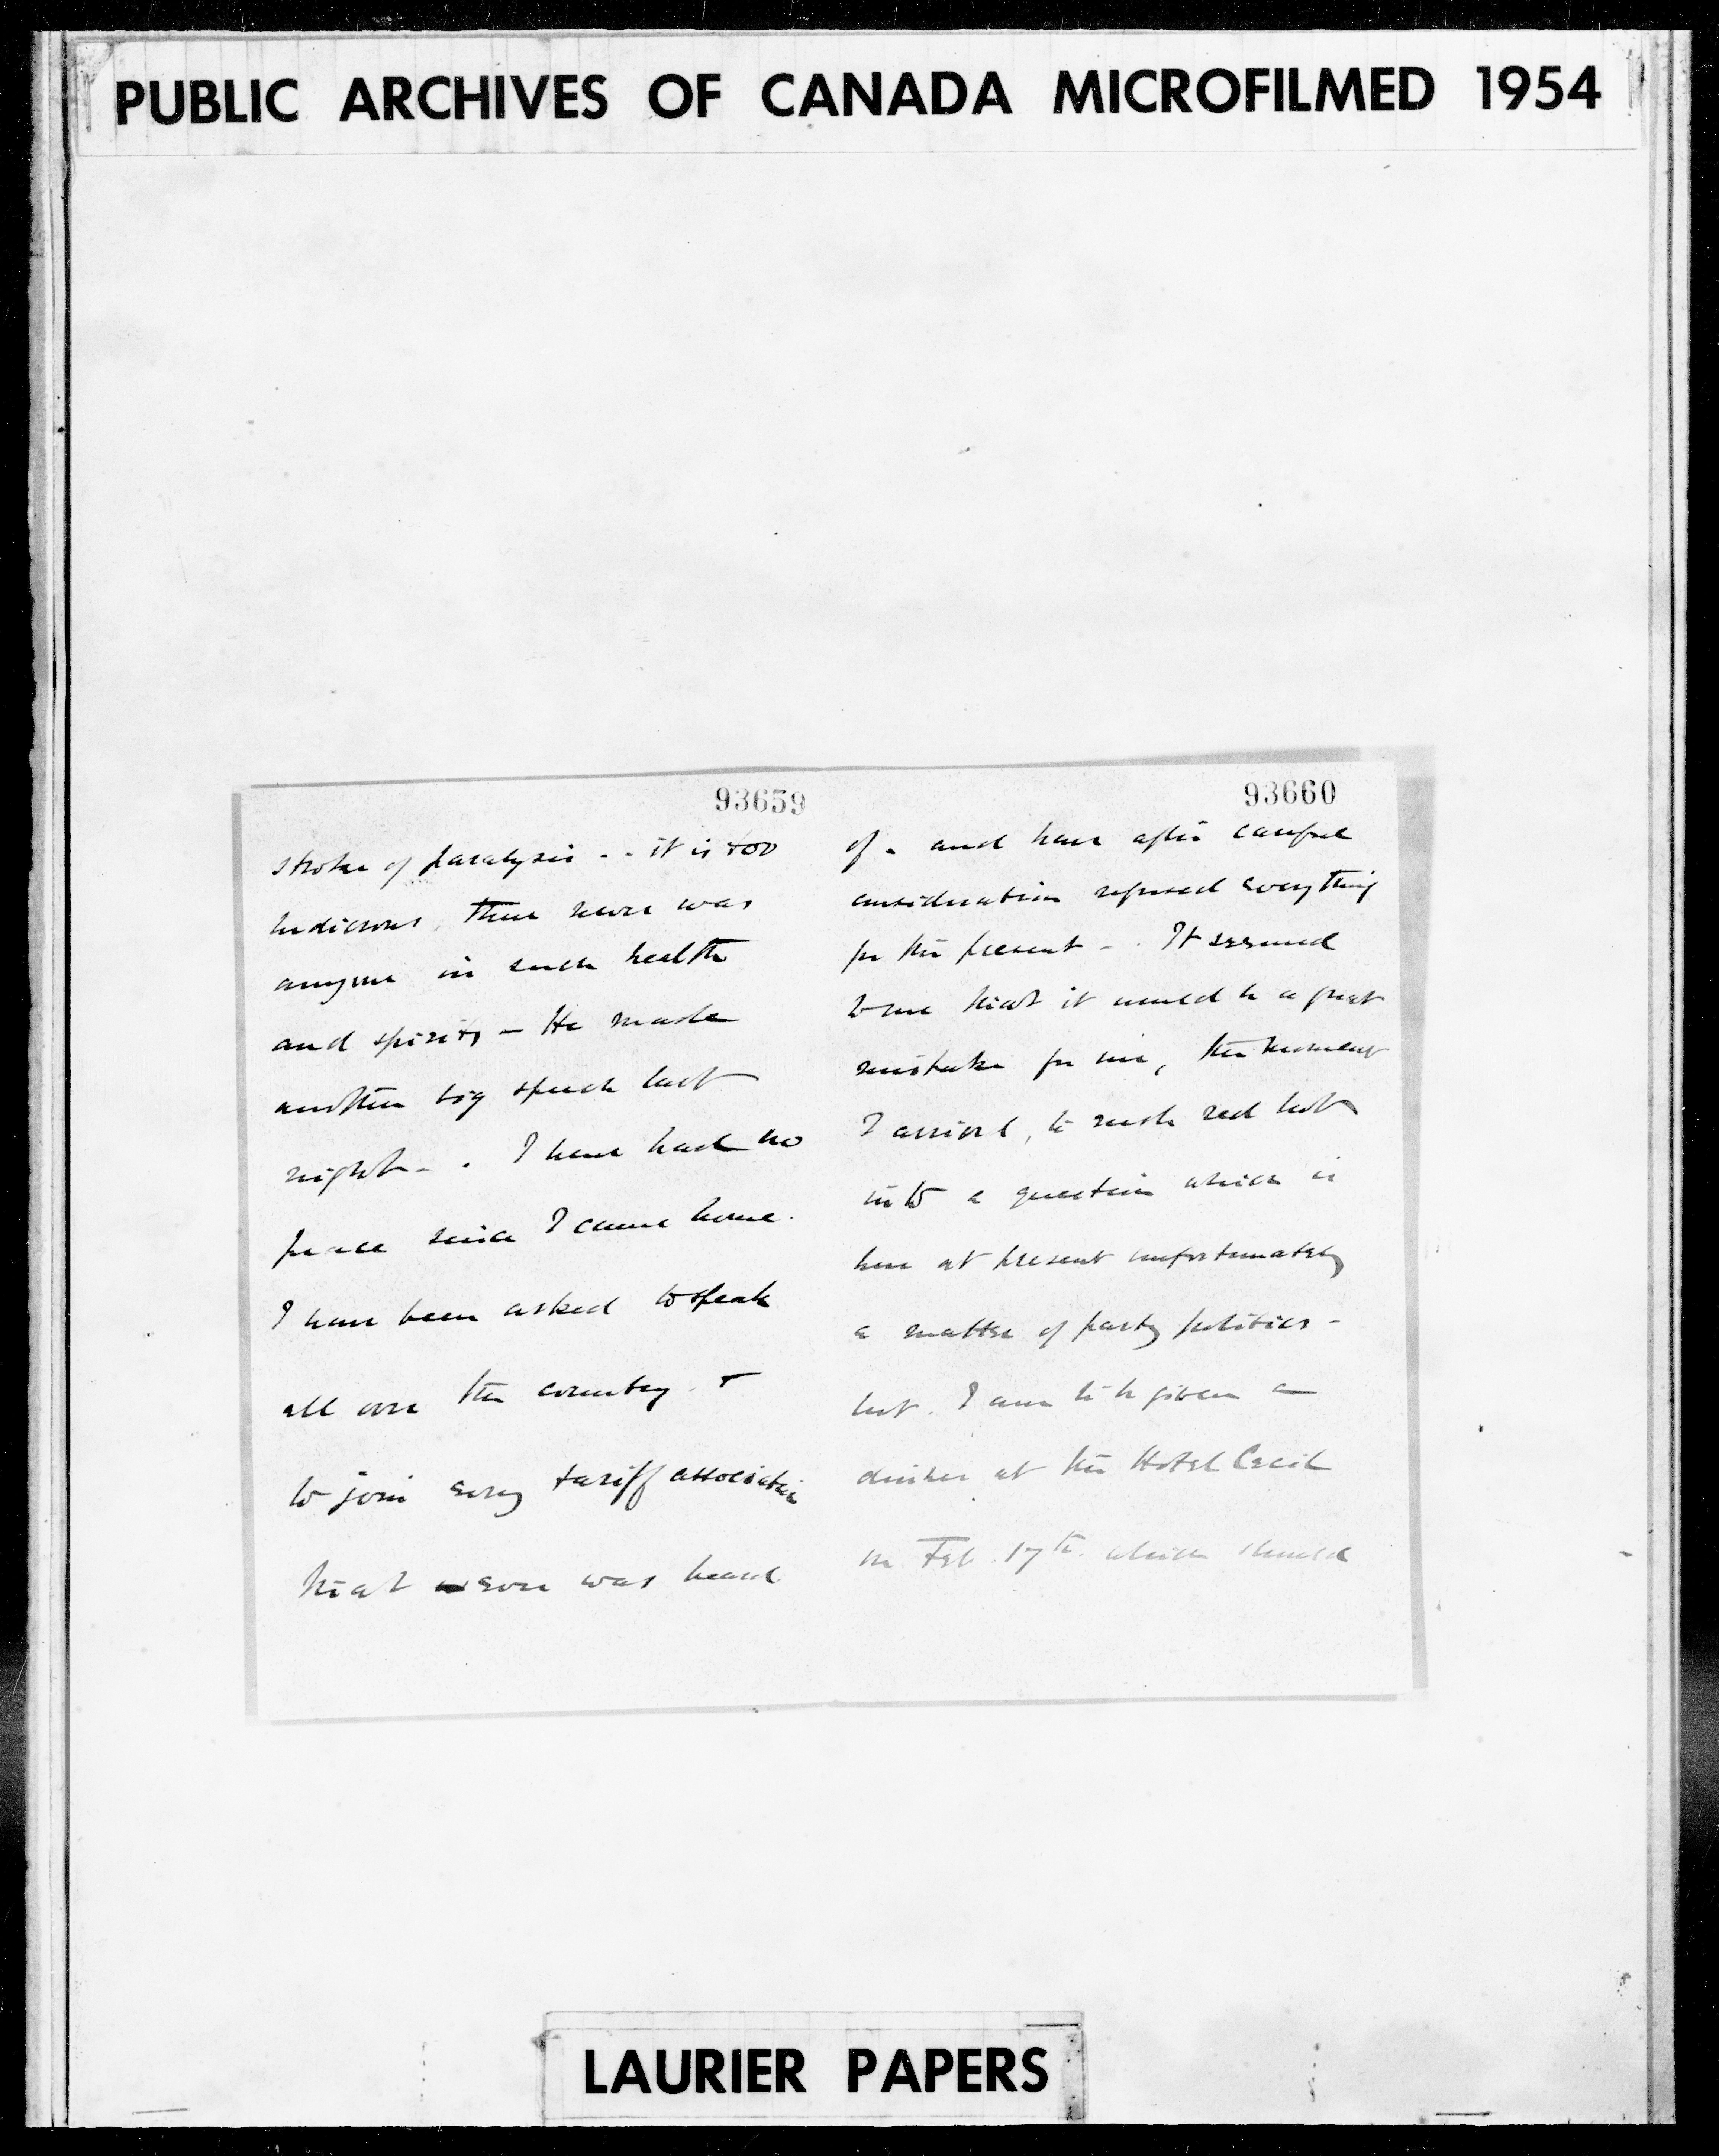 PUBLIC ARCHIVES OF CANADA MICROFILMED 1954
93659
stroke of paralysis - - it is too
ludicrous, there never was
anyone in such health
and spirits - He made
another big speech last
night - . I have had no
peace since I came home.
I have been asked to speak
all over the country. &
to join every tariff association
that ever was heard
93660
of - and have after careful
consideration refused everything
for the present - . It seemed
to me that it would be a great
mistake for me, the moment
I arrived, to rush red hot
into a question which is
here at present unfortunately
a matter of party politics -
but. I am to be given a
dinner at the Hotel Cecil
on Feb. 17th. which should
LAURIER PAPERS